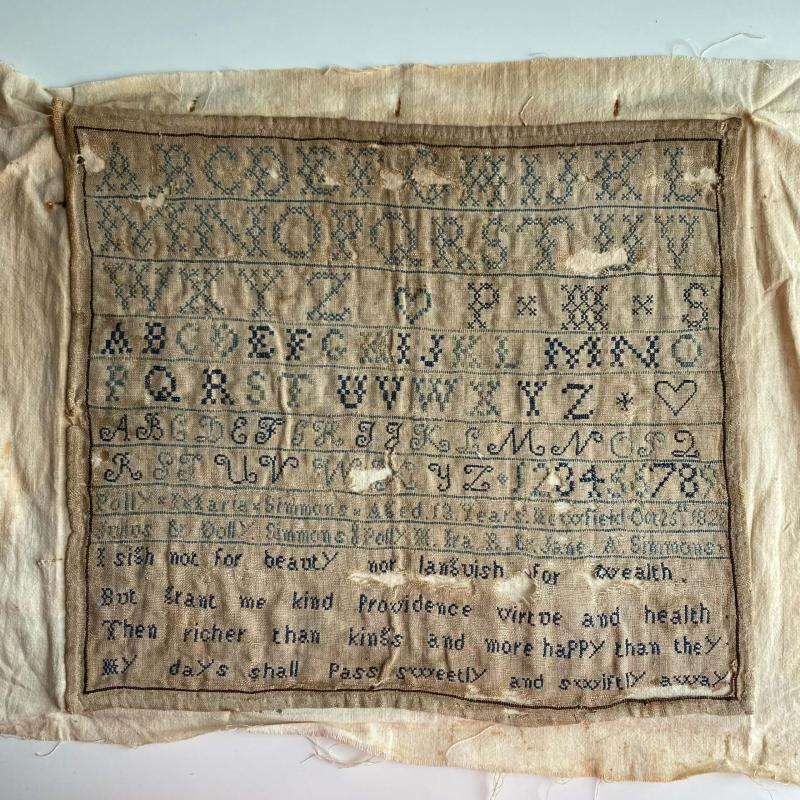 A B C D E F G H I J K L
M N O P Q R S T U V
W X Y Z ♡ P × M × S
A B C D E F G H I J K L M N O
P Q R S T U V W X Y Z * ♡
A B C D E F G H I J K L M N O P Q
R S T U V W X Y Z 1 2 3 4 5 6 7 8 9
Polly × Maria × Simmons × Aged 13 Years. Oct 25th
& Polly Simmons & Polly M. Ira R. & Jane A. Simmons
I sigh not for beauty nor languish for wealth.
But grant me kind Providence virtue and health
Then richer than kings and more happy than they
My days shall Pass sweetly and swiftly away